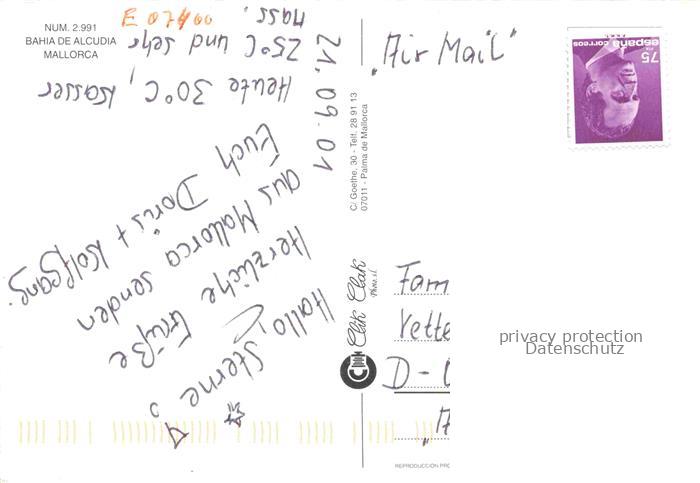 NUM. 2.991
BAHIA DE ALCUDIA
MALLORCA
E 07400
21.09.01
Hallo,
4 Sterne,
Herzliche Grüße
aus Mallorca senden
Euch Doris + Wolfgang.
Heute 30°C, Wasser
25°C und sehr
nass.
C/ Goethe, 30 - Telf. 28 91 13
07011 - Palma de Mallorca
Clik Clak
Phoco s.l.
"Air Mail"
75
PTA
españa correos
Fam
Vette
D-
"A
REPRODUCCION PRO
privacy protection
Datenschutz